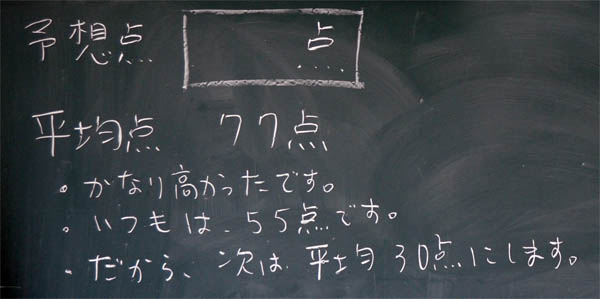 予想点 点
平均点 77点
・かなり高かったです。
・いつもは、55点です。
・だから、次は平均30点にします。